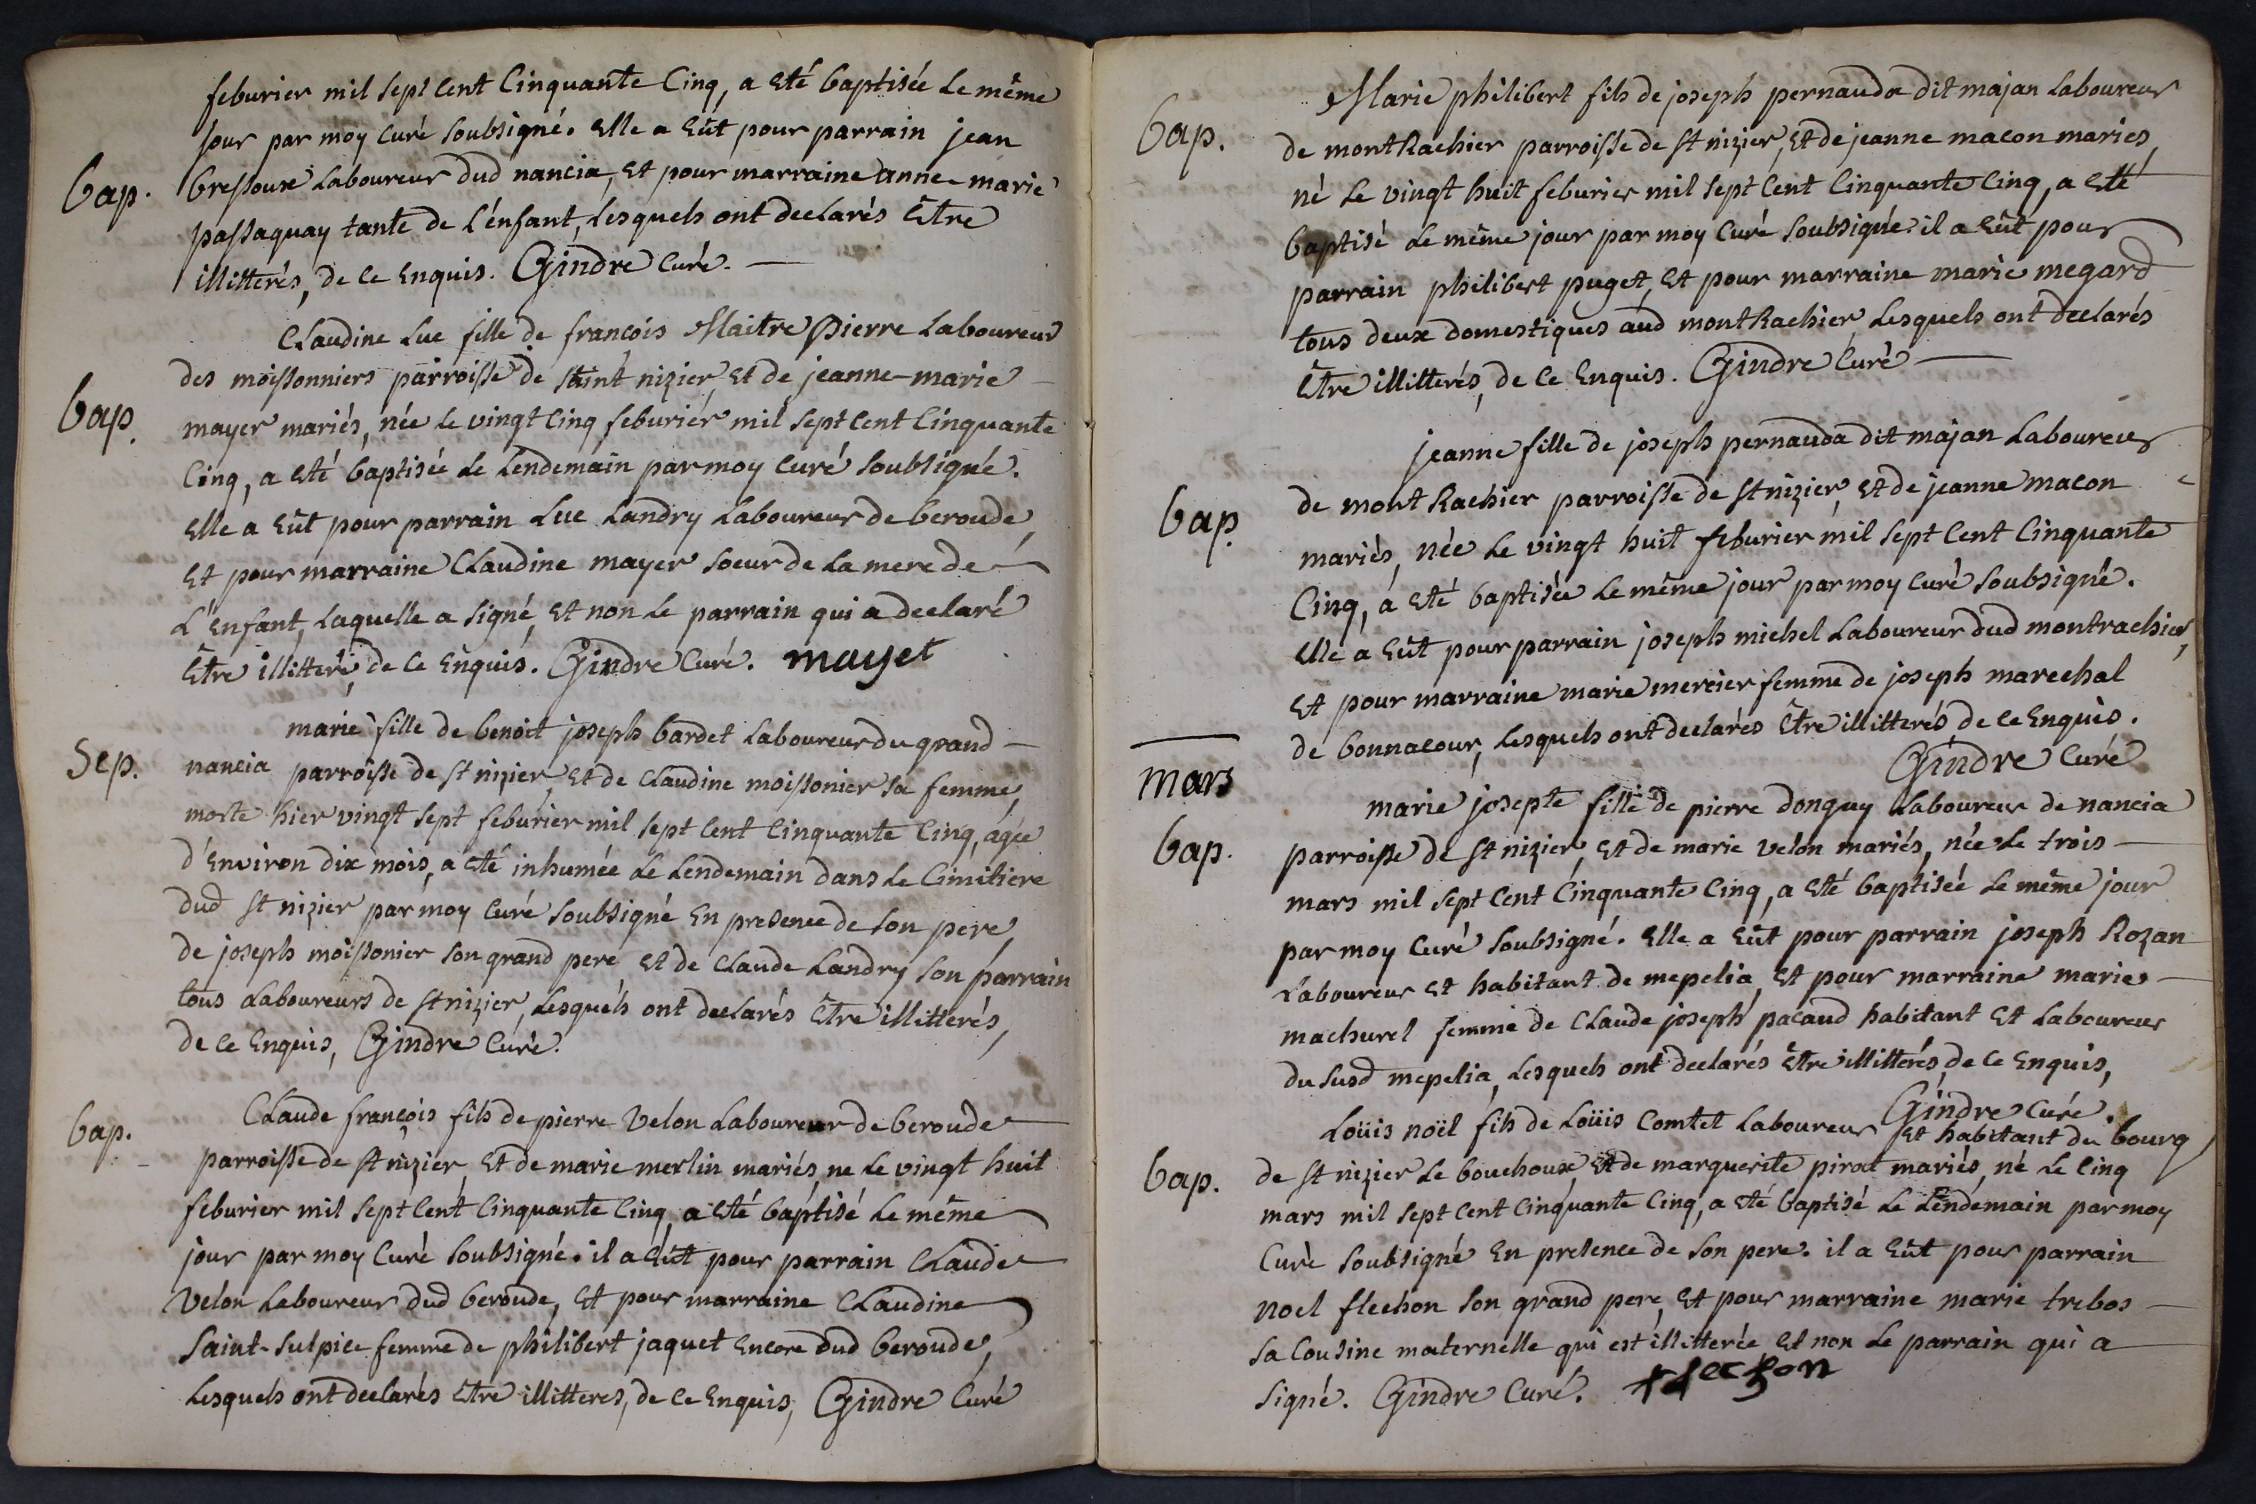 feburier mil sept Cent Cinquante Cinq, a Eté baptisée Le même
jour par moy Curé Soubsigné. Elle a Eût pour parrain jean
bap. bressoux Laboureur dud nancia, Et pour marraine anne-marie
passaquay tante de L'énfant, Lesquels ont declarés Être
illitterés, de Ce Enquis. Gindre Curé.
Claudine Luc fille de françois Maitre Pierre Laboureur
des moissonniers parroisse de Saint nizier, Et de jeanne-marie
bap. mayer mariés, née Le vingt Cinq feburier mil Sept Cent Cinquante
Cinq, a Eté baptisée Le Lendemain par moy Curé Soubsigné.
Elle a Eût pour parrain Luc Landry Laboureur de beroude,
Et pour marraine Claudine mayer Soeur de La mere de
L'Enfant, Laquelle a Signé, Et non Le parrain qui a declaré
Être illitteré, de Ce Enquis. Gindre Curé. mayet
marie fille de benoit joseph bardet Laboureur du grand
Sep. nancia parroisse de St nizier, Et de Claudine moissonier Sa femme,
morte hier vingt Sept feburier mil Sept Cent Cinquante Cinq, agée
d'Environ dix mois, a Eté inhumée Le Lendemain dans Le Cimitiere
dud St nizier par moy Curé Soubsigné En presence de Son pere,
de joseph moissonier Son grand pere Et de Claude Landry Son parrain
tous Laboureurs de St nizier, Lesquels ont declarés Être illitterés,
de Ce Enquis, Gindre Curé.
Claude françois fils de pierre Velon Laboureur de beroude
bap. parroisse de St nizier, Et de marie merlin mariés, ne Le vingt huit
feburier mil Sept Cent Cinquante Cinq, a Eté baptisé Le même
jour par moy Curé Soubsigné. il a Eût pour parrain Claude
Velon Laboureur dud beroude, Et pour marraine Claudine
Saint-Sulpice femme de philibert jaquet Encore dud beroude,
Lesquels ont declarés Etre illitteres, de Ce Enquis, Gindre Curé
Marie philibert fils de joseph pernauda dit majan Laboureur
bap. de montRachier parroisse de St nizier, Et de jeanne macon mariés,
né Le vingt huit feburier mil Sept Cent Cinquante Cinq, a Eté
baptisé Le même jour par moy Curé Soubsigné. il a Eût pour
parrain philibert puget, Et pour marraine marie megard
tous deux domestiques aud montRachier, Lesquels ont declarés
Être illitterés, de Ce Enquis. Gindre Curé
jeanne fille de joseph pernauda dit majan Laboureur
bap. de montRachier parroisse de St nizier, Et de jeanne macon
mariés, née Le vingt huit feburier mil Sept Cent Cinquante
Cinq, a Eté baptisée Le même jour par moy Curé Soubsigné.
Elle a Eût pour parrain joseph michel Laboureur dud montrachier,
Et pour marraine marie mercier femme de joseph marechal
de bonnacour, Lesquels ont declarés Être illitterés, de Ce Enquis.
Gindre Curé
mars
marie josepte fille de pierre donguy Laboureur de nancia
bap. parroisse de St nizier, Et de marie Velon mariés, née Le trois
mars mil Sept Cent Cinquante Cinq, a Eté baptisée Le même jour
par moy Curé Soubsigné. Elle a Eût pour parrain joseph Rozan
Laboureur Et habitant de mepelia, Et pour marraine marie
machurel femme de Claude joseph pacaud habitant Et Laboureur
du Susd mepelia, Lesquels ont declarés Être illitterés, de Ce Enquis,
Gindre Curé.
Loüis noël fils de Loüis Comtet Laboureur Et habitant du bourg
bap. de St nizier Le bouchoux, Et de marguerite pirat mariés, né Le Cinq
mars mil Sept Cent Cinquante Cinq, a Eté baptisé Le Lendemain par moy
Curé Soubsigné En presence de Son pere. il a Eût pour parrain
noel flechon Son grand pere, Et pour marraine marie trebos
Sa Cousine maternelle qui est illitterée, Et non Le parrain qui a
Signé. Gindre Curé. flechon